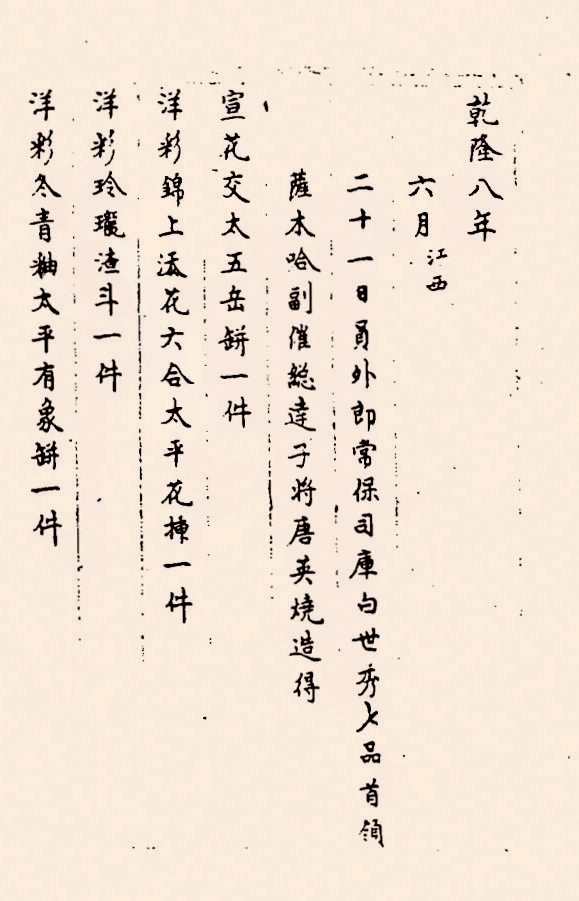 乾隆八年
六月 江西
二十一日員外郎常保司庫白世秀七品首領
薩木哈副催總達子将唐英燒造得
宣花交太五岳缾一件
洋彩錦上添花六合太平花揀一件
洋彩玲瓏渣斗一件
洋彩冬青釉太平有象缾一件